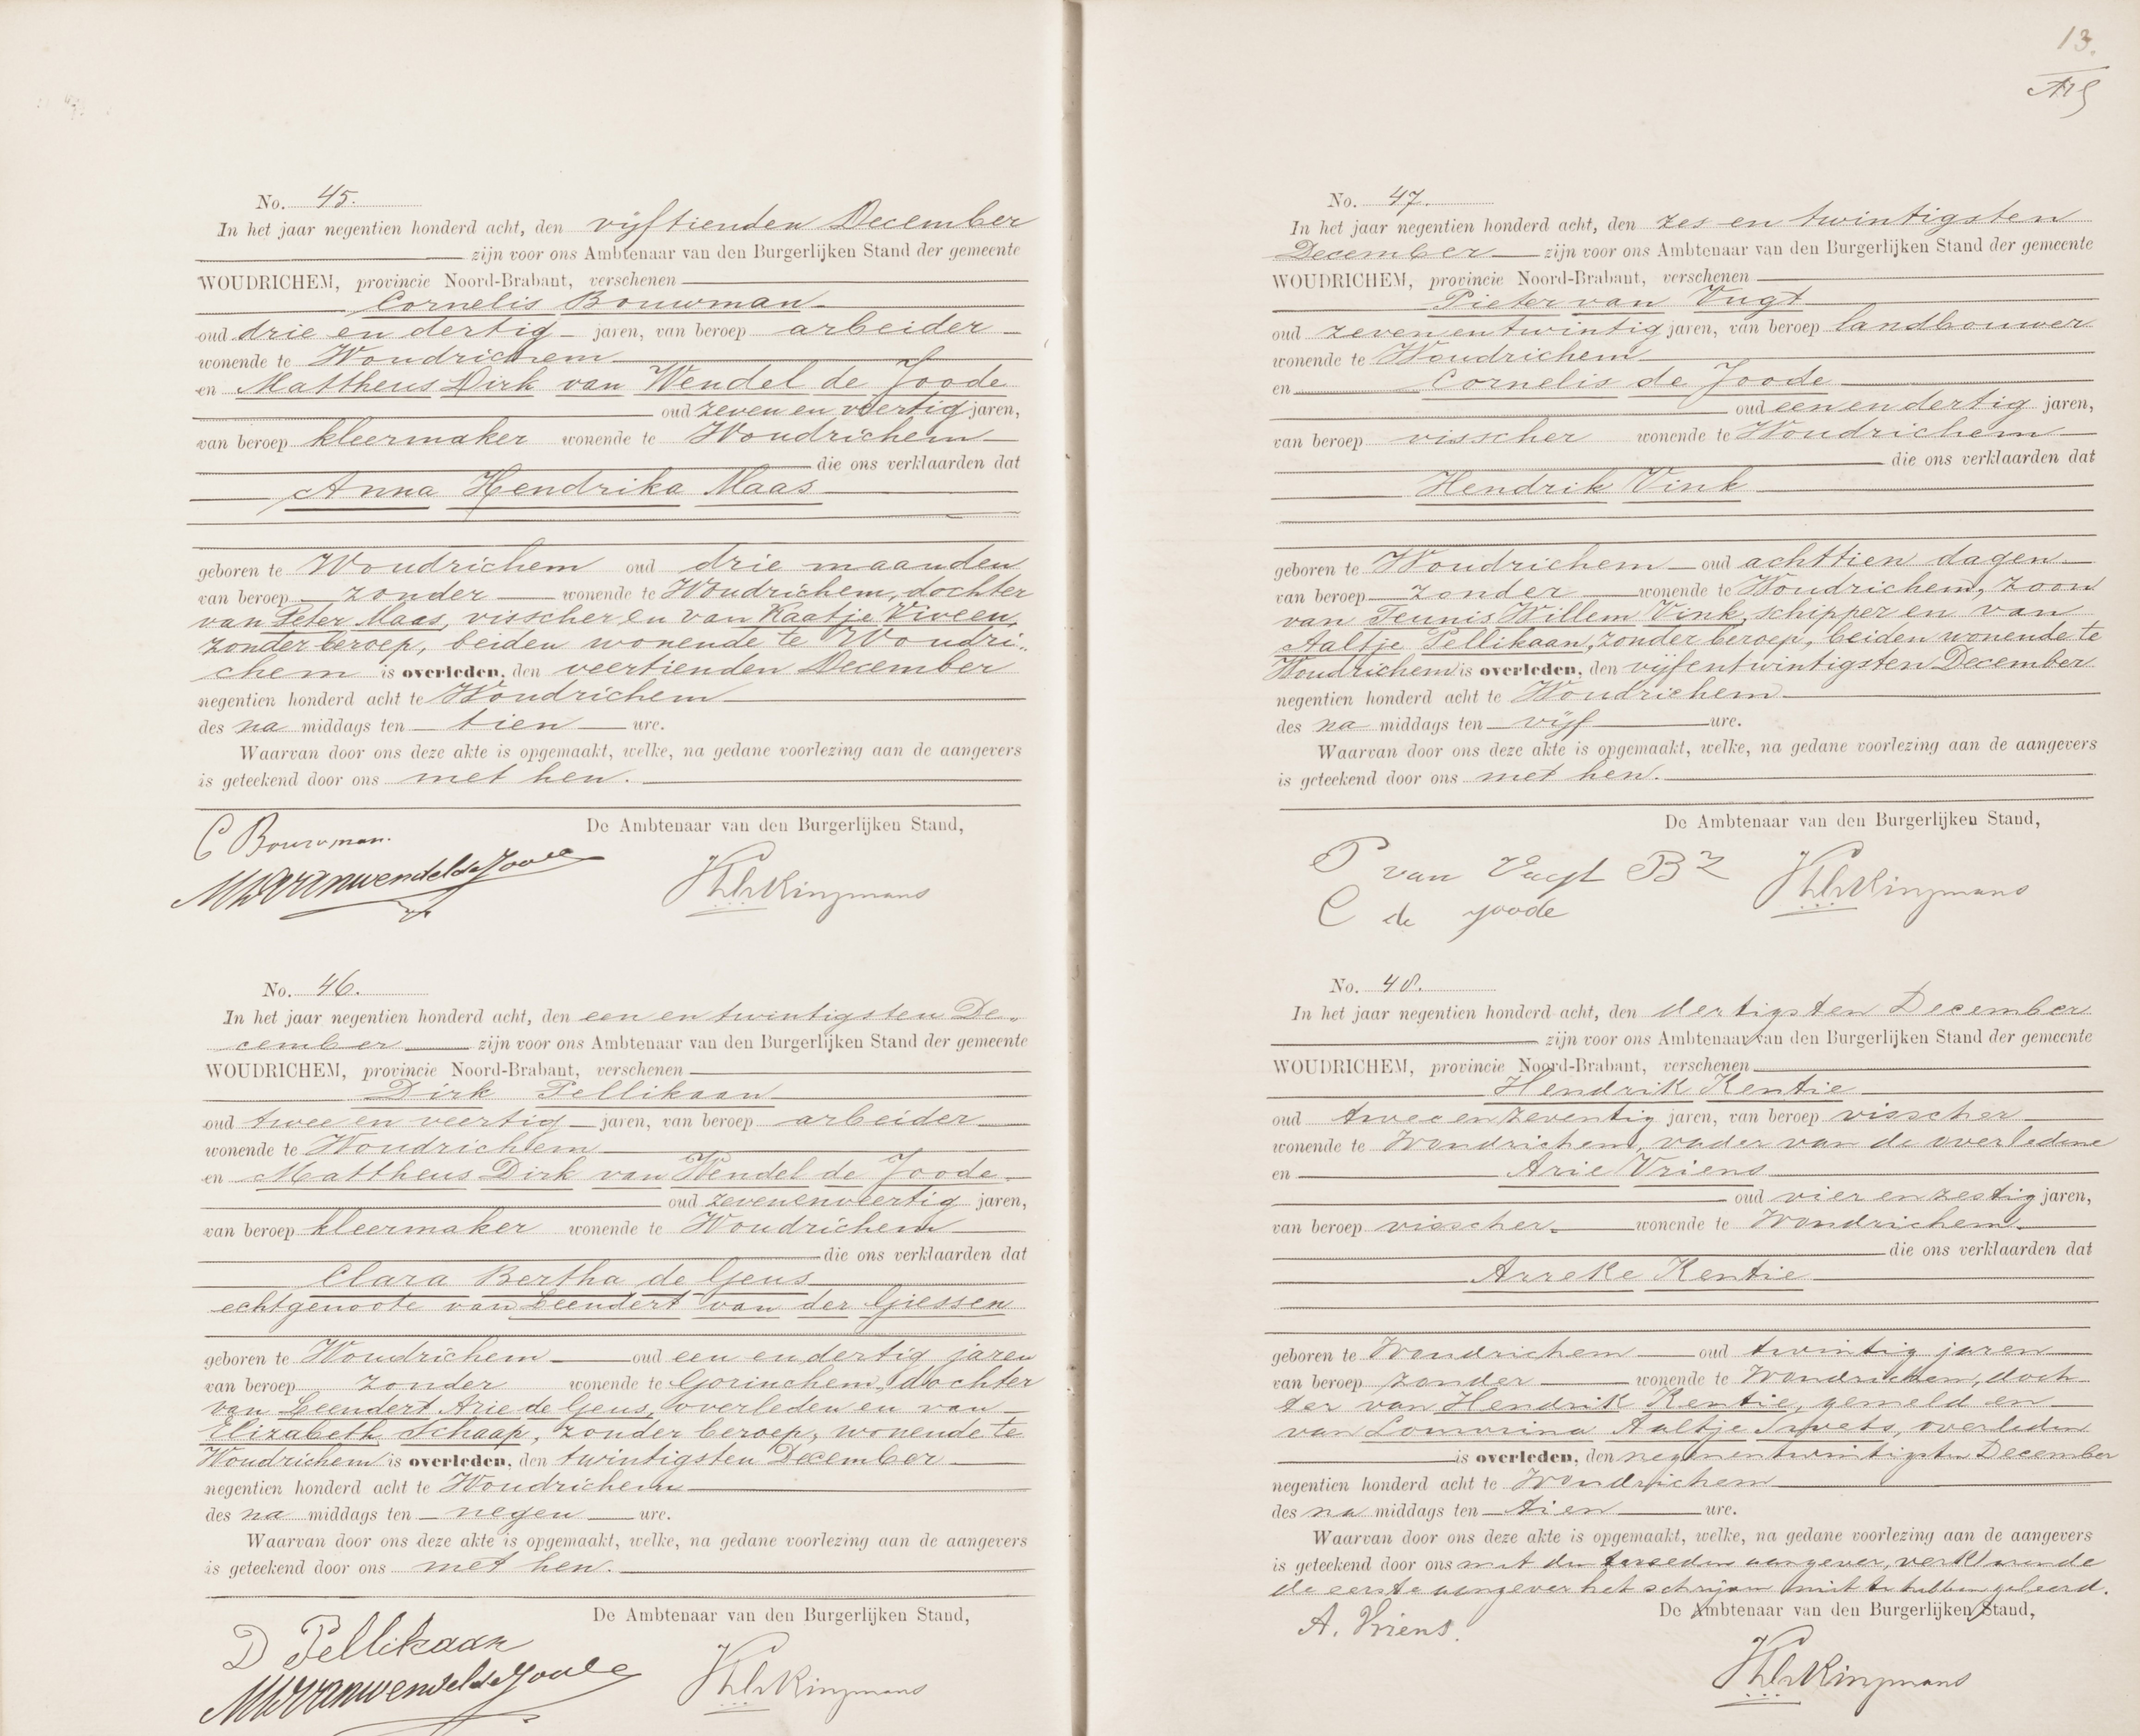 No. 45.
In het jaar negentien honderd acht, den vijftienden December
zijn voor ons Ambtenaar van den Burgerlijken Stand der gemeente
WOUDRICHEM, provincie Noord-Brabant, verschenen
Cornelis Bouwman
oud drie en dertig jaren, van beroep arbeider
wonende te Woudrichem
en Mattheus Dirk van Wendel de Joode
oud zeven en veertig jaren,
van beroep kleermaker wonende te Woudrichem
die ons verklaarden dat
Anna Hendrika Maas
geboren te Woudrichem oud drie maanden
van beroep zonder wonende te Woudrichem, dochter
van Peter Maas, visscher en van Kaatje Viveen,
zonder beroep, beiden wonende te Woudri-
chem is overleden, den veertienden December
negentien honderd acht te Woudrichem
des na middags ten tien ure.
Waarvan door ons deze akte is opgemaakt, welke, na gedane voorlezing aan de aangevers
is geteekend door ons met hen.
De Ambtenaar van den Burgerlijken Stand,
C Bouwman.
MDvanwendeldeJoode
No. 46.
In het jaar negentien honderd acht, den een en twintigsten De-
cember zijn voor ons Ambtenaar van den Burgerlijken Stand der gemeente
WOUDRICHEM, provincie Noord-Brabant, verschenen
Dirk Pellikaan
oud twee en veertig jaren, van beroep arbeider
wonende te Woudrichem
en Mattheus Dirk van Wendel de Joode
oud zevenenveertig jaren,
van beroep kleermaker wonende te Woudrichem
die ons verklaarden dat
Clara Bertha de Geus
echtgenoote van Leendert van der Giessen
geboren te Woudrichem oud een en dertig jaren
van beroep zonder wonende te Gorinchem, dochter
van Leendert Arie de Geus, overleden en van
Elizabeth Schaap, zonder beroep, wonende te
Woudrichem is overleden, den twintigsten December
negentien honderd acht te Woudrichem
des na middags ten negen ure.
Waarvan door ons deze akte is opgemaakt, welke, na gedane voorlezing aan de aangevers
is geteekend door ons met hen.
De Ambtenaar van den Burgerlijken Stand,
D Pellikaan
MDvanwendeldeJoode
13.
No. 47.
In het jaar negentien honderd acht, den zes en twintigsten
December zijn voor ons Ambtenaar van den Burgerlijken Stand der gemeente
WOUDRICHEM, provincie Noord-Brabant, verschenen
Pieter van Vugt
oud zevenentwintig jaren, van beroep landbouwer
wonende te Woudrichem
en Cornelis de Joode
oud eenendertig jaren,
van beroep visscher wonende te Woudrichem
die ons verklaarden dat
Hendrik Vink
geboren te Woudrichem oud achttien dagen
van beroep zonder wonende te Woudrichem, zoon
van Teunis Willem Vink, schipper en van
Aaltje Pellikaan, zonder beroep, beiden wonende te
Woudrichem is overleden, den vijfentwintigsten December
negentien honderd acht te Woudrichem
des na middags ten vijf ure.
Waarvan door ons deze akte is opgemaakt, welke, na gedane voorlezing aan de aangevers
is geteekend door ons met hen.
De Ambtenaar van den Burgerlijken Stand,
P van Vugt BZ
C de joode
No. 48.
In het jaar negentien honderd acht, den dertigsten December
zijn voor ons Ambtenaar van den Burgerlijken Stand der gemeente
WOUDRICHEM, provincie Noord-Brabant, verschenen
Hendrik Kentie
oud twee en zeventig jaren, van beroep visscher
wonende te Woudrichem, vader van de overledene
en Arie Vriens
oud vier en zestig jaren,
van beroep visscher wonende te Woudrichem
die ons verklaarden dat
Arreke Kentie
geboren te Woudrichem oud twintig jaren
van beroep zonder wonende te Woudrichem, doch
ter van Hendrik Kentie, gemeld en
van Louwrina Aaltje Swets, overleden
is overleden, den negenentwintigsten December
negentien honderd acht te Woudrichem
des na middags ten tien ure.
Waarvan door ons deze akte is opgemaakt, welke, na gedane voorlezing aan de aangevers
is geteekend door ons met den tweeden aangever, verklarende
de eerste aangever het schrijven niet te hebben geleerd.
De Ambtenaar van den Burgerlijken Stand,
A. Vriens.